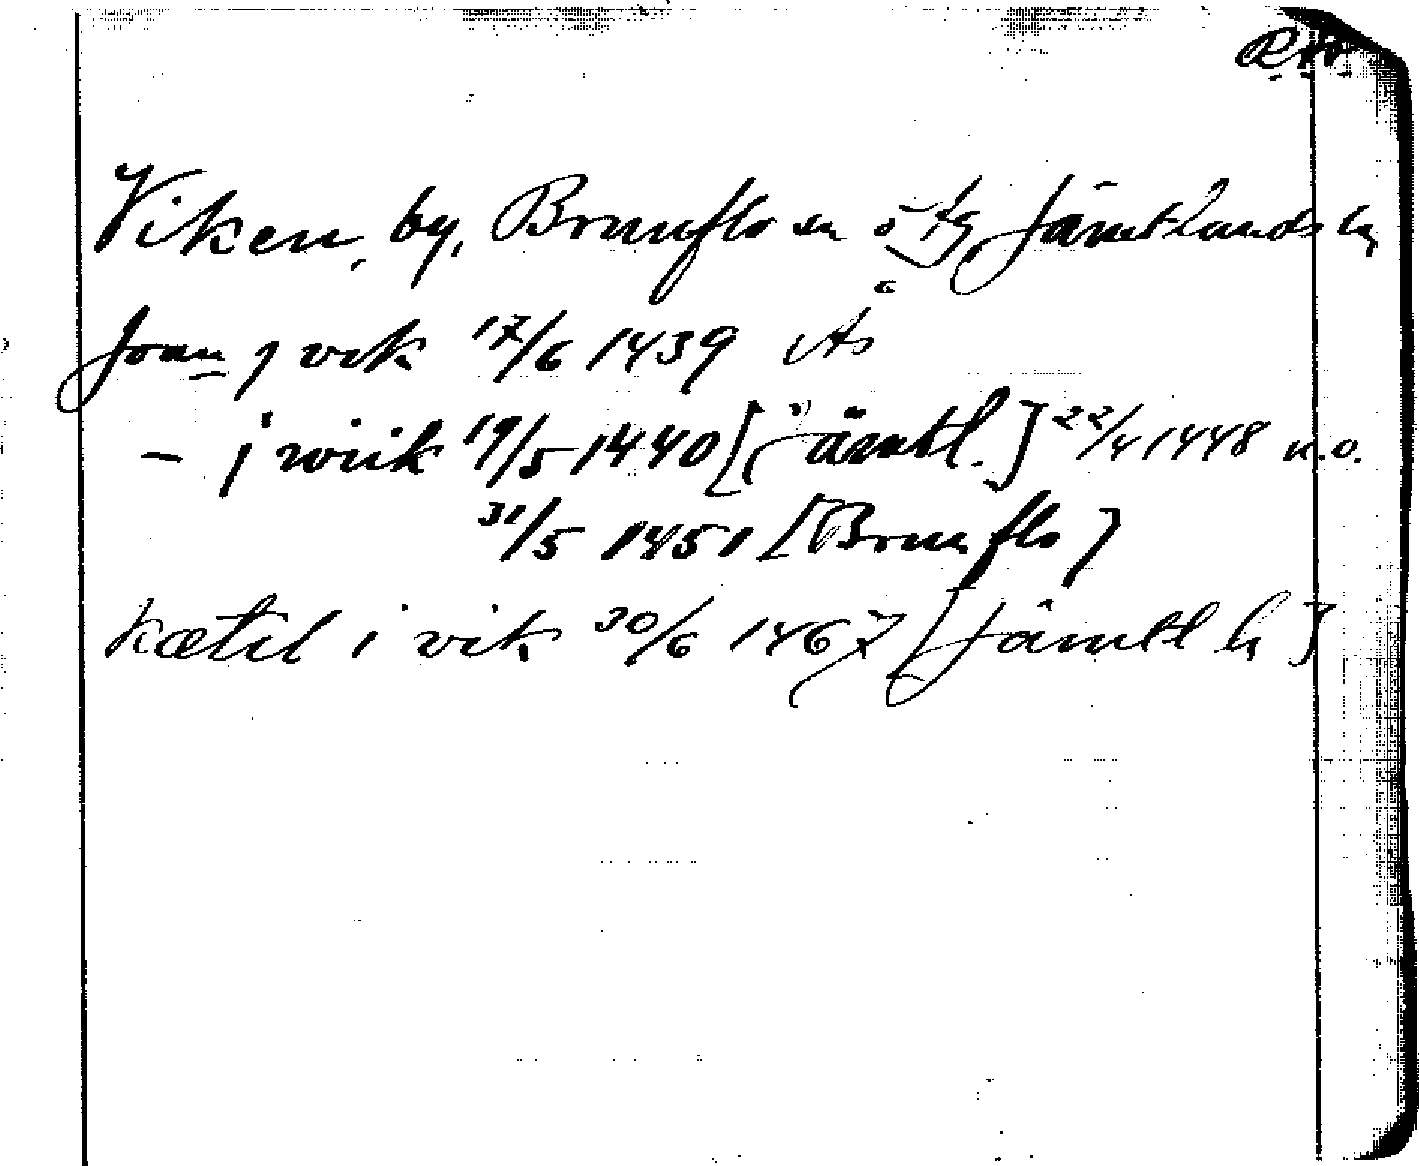 Viken, by, Brunflo sn ö tg Jämtlands l
Joan j vik 17/6 1439 Ås
– j wiik 19/5 1440 [Jämtl.] 22/4 1448 u.o.
31/5 1451 [Brunflo]
kætil i vik 30/6 1467 [Jämtl l]